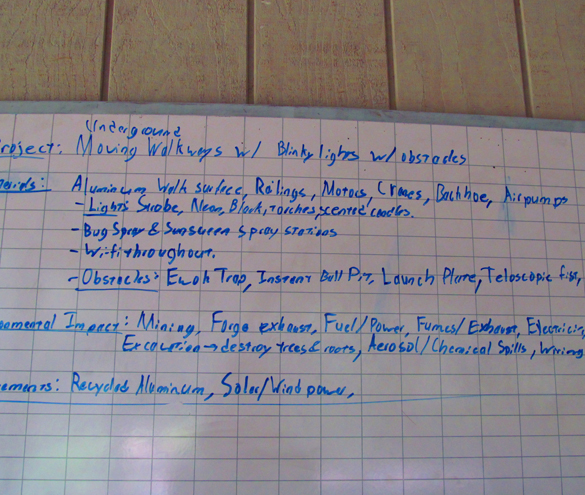 Underground
roject: Moving Walkways w/ Blinky lights w/ obstacles
erials: Aluminum Walk surface, Railings, Motors, Cranes, Backhoe, Air pumps
- Lights Strobe, Neon, Black, torches, scented candles.
- Bug Spray & Sunscreen spray stations
- Wifi throughout.
- Obstacles: Ewok Trap, Instant Ball Pit, Launch Plate, Teloscopic fist,
onmental Impact: Mining, Forge exhaust, Fuel/Power, Fumes/Exhaust, Electricity
Excavation → destroy trees & roots, Aerosol/Chemical Spills, Wiring
ements: Recycled Aluminum, Solar/Wind power,